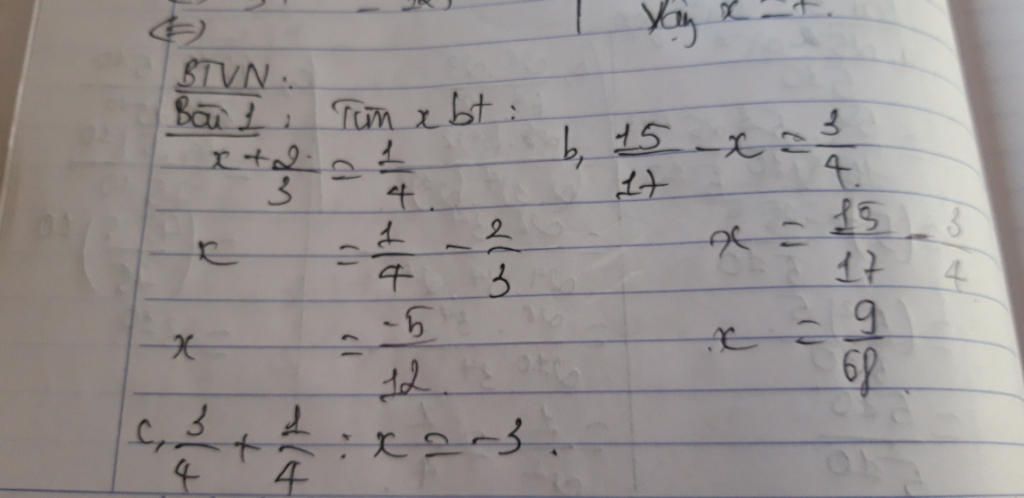 Vậy x = 7.
(=)
BTVN:
Bài 1: Tìm x bt:
x + 2/3 = 1/4
x = 1/4 - 2/3
x = -5/12.
b, 15/17 - x = 3/4.
x = 15/17 - 3/4
x = 9/68.
c, 3/4 + 1/4 : x = -3.